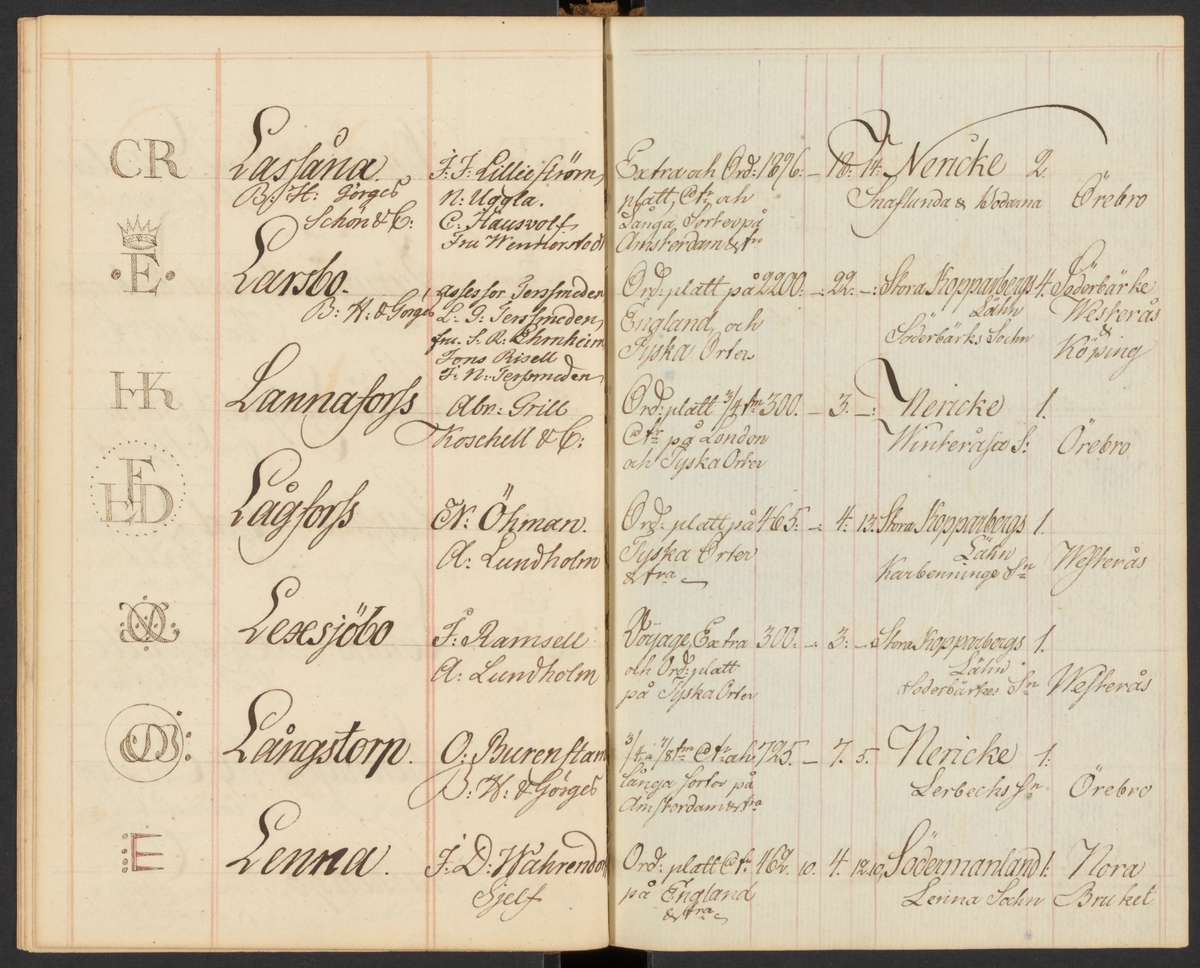 CR Lassåna. J. J. Lillieström Extra och Ord: 1876. – 18: 14: Nericke 2.
B: H: Görges N: Uggla. platt, och Snaflunda & Wodarna Örebro
Schön & C: C. Hausvolf Långa Sorter på
Fru Wentlerstedt Amsterdam & tra
E Larsbo. assessor Tersmeden Ord: platt på 2200. – 22. – Stora Kopparbergs 4. Söderbärke
B: H: & Görges L: G: Tersmeden England, och Lähn Westerås
fru. S. R. Ehrnheim Tyska Orter Söderbärks Sochn &
Fons Risell Köping
J: N: Tersmeden
HK Lannaforss Abr: Grill Ord: platt 3/4 tm 300. – 3. – Nericke 1.
Koschell & C: på London Winteråsa S: Örebro
och Tyska Orter
F
LD Lågforss N: Öhman. Ord: platt på 465. – 4: 13. Stora Kopparbergs 1.
A: Lundholm Tyska Orter Lähn Westerås
& tra Karbenninge Sn
Lexsjöbo J: Ramsell Voyage, Extra 300. – 3: – Stora Kopparbergs 1.
A: Lundholm och Ord: platt Lähn
på Tyska Orter Söderbärkes Sn Westerås
Långstorp. O: Burenstam 3/4 a 7/8 tm och 725. – 7. 5. Nericke 1:
B: H: & Görges långa sorter på Lerbechs Sn Örebro
Amsterdam & tra
E Lenna. J: D: Wahrendorf Ord: platt 462. 10. 4. 12.10. Södermanland 1. Nora
Sjelf på England Lenna Sochn Bruket
& tra